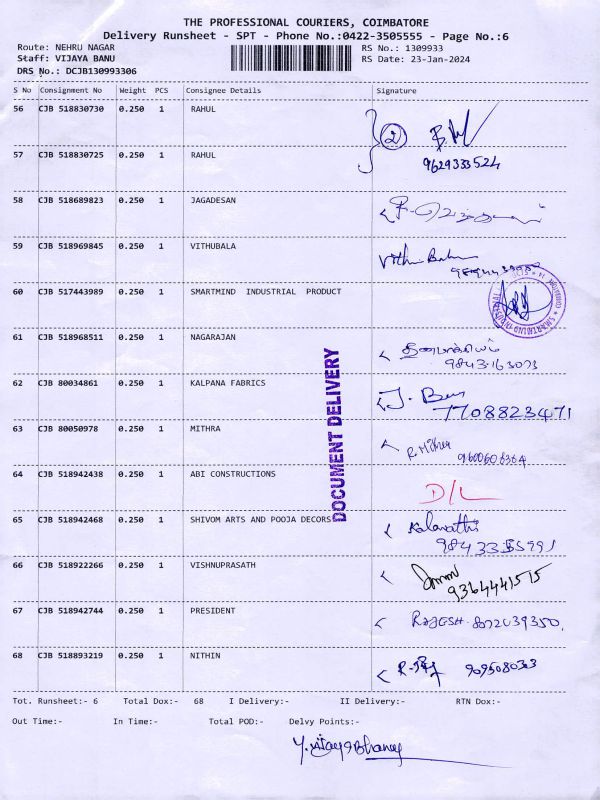 THE PROFESSIONAL COURIERS, COIMBATORE
Delivery Runsheet - SPT - Phone No.:0422-3505555 - Page No.:6
Route: NEHRU NAGAR RS No.: 1309933
Staff: VIJAYA BANU RS Date: 23-Jan-2024
DRS No.: DCJB130993306
S No Consignment No Weight PCS Consignee Details Signature
56 CJB 518830730 0.250 1 RAHUL 2
9629333524
57 CJB 518830725 0.250 1 RAHUL
58 CJB 518689823 0.250 1 JAGADESAN
59 CJB 518969845 0.250 1 VITHUBALA
60 CJB 517443989 0.250 1 SMARTMIND INDUSTRIAL PRODUCT
61 CJB 518968511 0.250 1 NAGARAJAN
9843163073
62 CJB 80034861 0.250 1 KALPANA FABRICS
7708823471
63 CJB 80050978 0.250 1 MITHRA
DOCUMENT DELIVERY
64 CJB 518942438 0.250 1 ABI CONSTRUCTIONS D/L
65 CJB 518942468 0.250 1 SHIVOM ARTS AND POOJA DECORS Kalavathi
66 CJB 518922266 0.250 1 VISHNUPRASATH
9364441515
67 CJB 518942744 0.250 1 PRESIDENT RAJESH. 8072039350.
68 CJB 518893219 0.250 1 NITHIN
Tot. Runsheet:- 6 Total Dox:- 68 I Delivery:- II Delivery:- RTN Dox:-
Out Time:- In Time:- Total POD:- Delvy Points:-